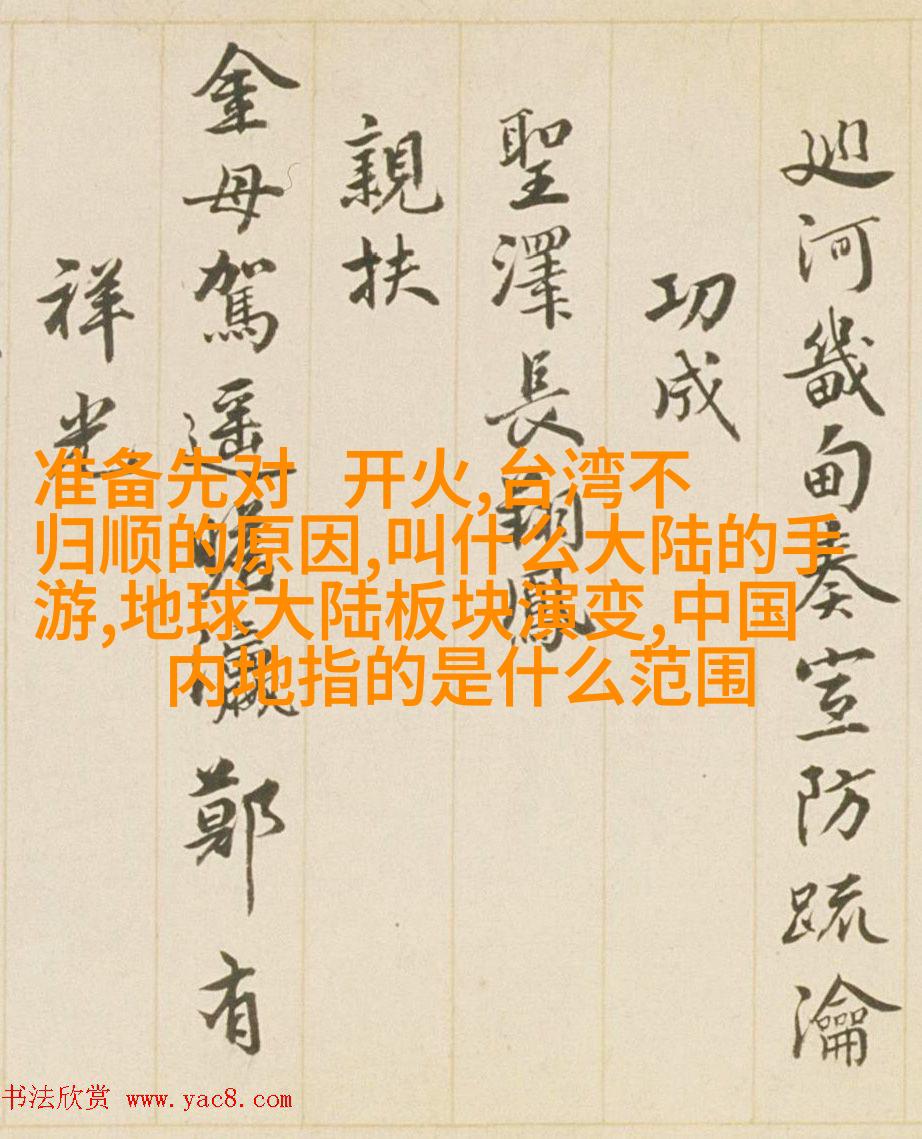 巡河畿甸奏宣防疏瀹
功成
聖澤長翔鳳
親扶
金母駕遥瞻瀛鄭有
祥光
准备先对 开火,台湾不
归顺的原因,叫什么大陆的手
游,地球大陆板块演变,中国
内地指的是什么范围
书法欣赏 www.yac8.com